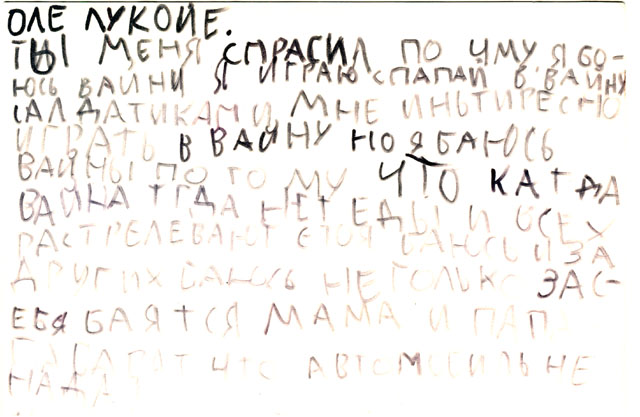 ОЛЕ ЛУКОЙЕ.
ТЫ МЕНЯ СПРАСИЛ ПО ЧМУ Я БО-
ЮСЬ ВАЙНИ Я ИГРАЮ СПАПАЙ В ВАЙНУ
САЛДАТИКАМИ МНЕ ИНЬТИРЕСНО
ИГРАТЬ В ВАЙНУ НО Я БАЮСЬ
ВАЙНЫ ПО ТО МУ ЧТО КАТДА
ВАЙНА ТГДА НЕТ ЕДЫ И ВСЕХ
РАСТРЕЛЕВАЮТ БАЮСЬ И ЗА
ДРУГИХ БАЮСЬ НЕ ТОЛЬКО ЗАС-
ЕБЯ БАЯТСЯ МАМА И ПАПА
ЧТО НЕ
НАДА